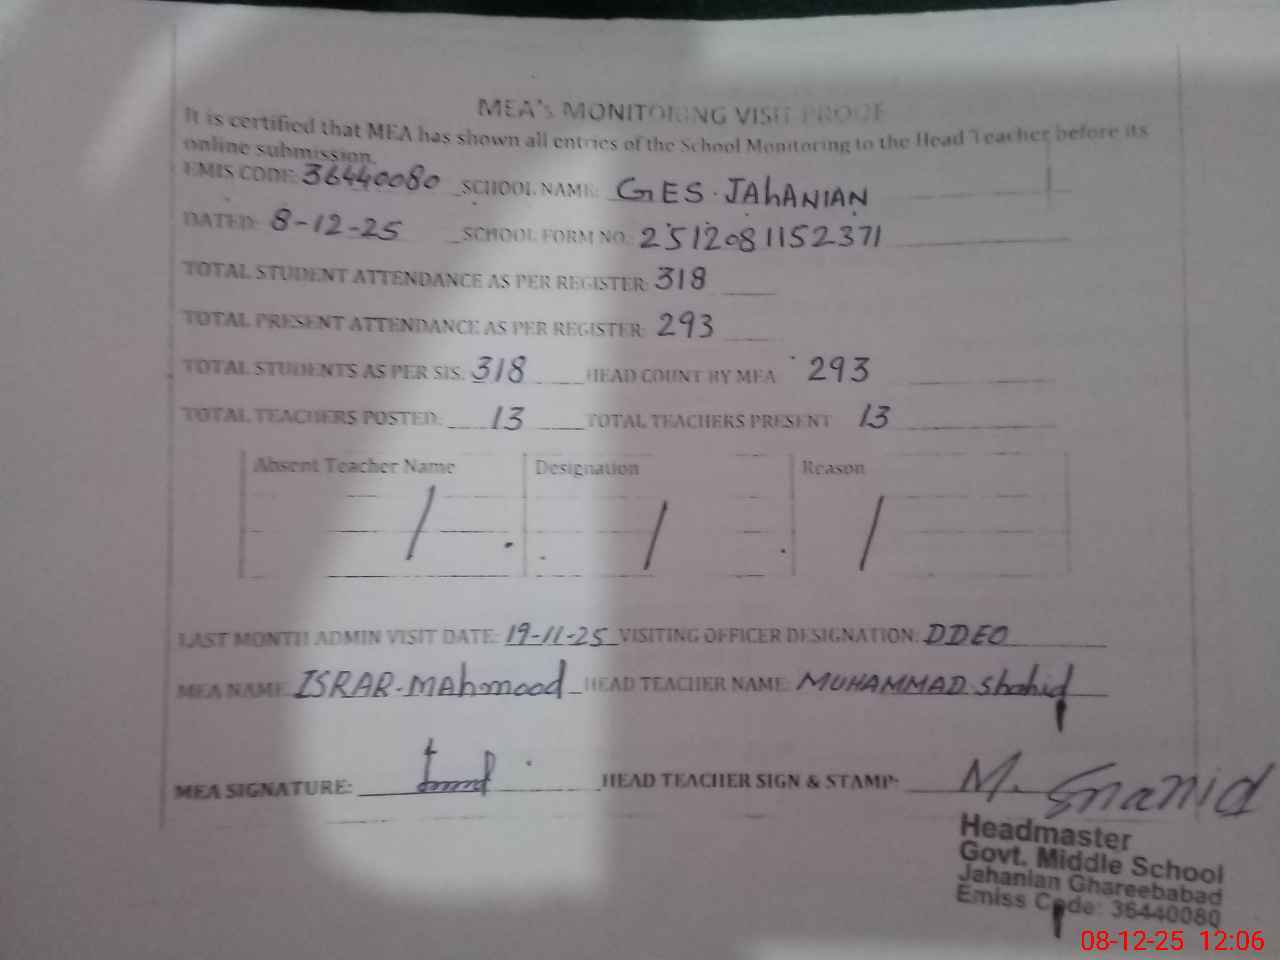 MEA's MONITORING VISIT PROOF
It is certified that MEA has shown all entries of the School Monitoring to the Head Teacher before its
online submission.
EMIS CODE: 36440080 SCHOOL NAME: GES. JAhANIAN
DATED: 8-12-25 SCHOOL FORM NO.: 2512081152371
TOTAL STUDENT ATTENDANCE AS PER REGISTER: 318
TOTAL PRESENT ATTENDANCE AS PER REGISTER: 293
TOTAL STUDENTS AS PER SIS: 318 HEAD COUNT BY MEA 293
TOTAL TEACHERS POSTED: 13 TOTAL TEACHERS PRESENT 13
Absent Teacher Name Designation Reason
/ / /
LAST MONTH ADMIN VISIT DATE: 19-11-25 VISITING OFFICER DESIGNATION: DDEO
MEA NAME: ISRAR-MAhmood HEAD TEACHER NAME: MUHAMMAD Shahid
MEA SIGNATURE: HEAD TEACHER SIGN & STAMP: M. Shahid
Headmaster
Govt. Middle School
Jahanian Ghareebabad
Emiss Code: 36440080
08-12-25 12:06